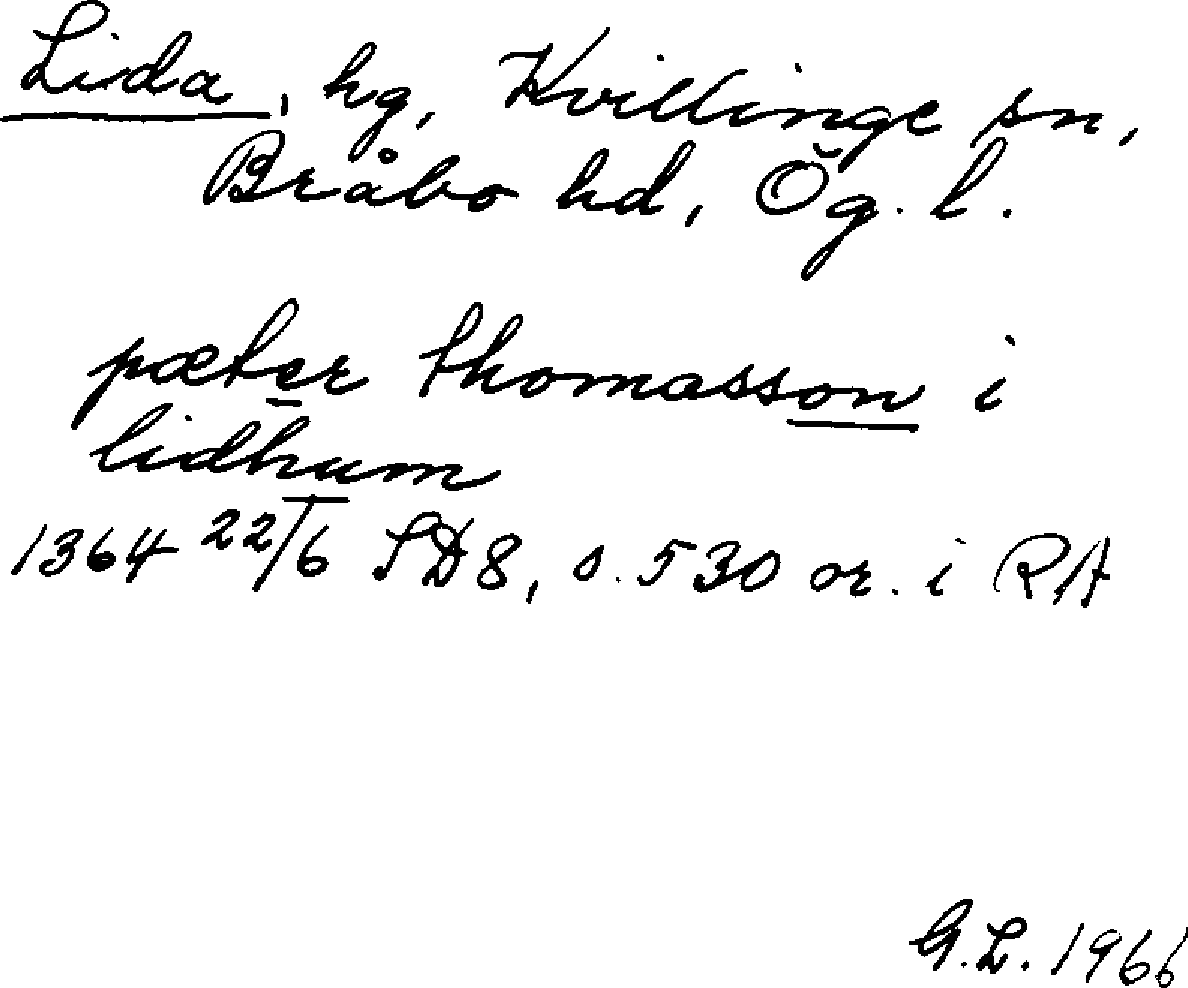 Lida, hg, Kvillinge sn,
Bråbo hd, Ög. l.
pæter thomasson i
lidhum
1364 22/6 SD8, s. 530 or. i RA
G.L. 1966